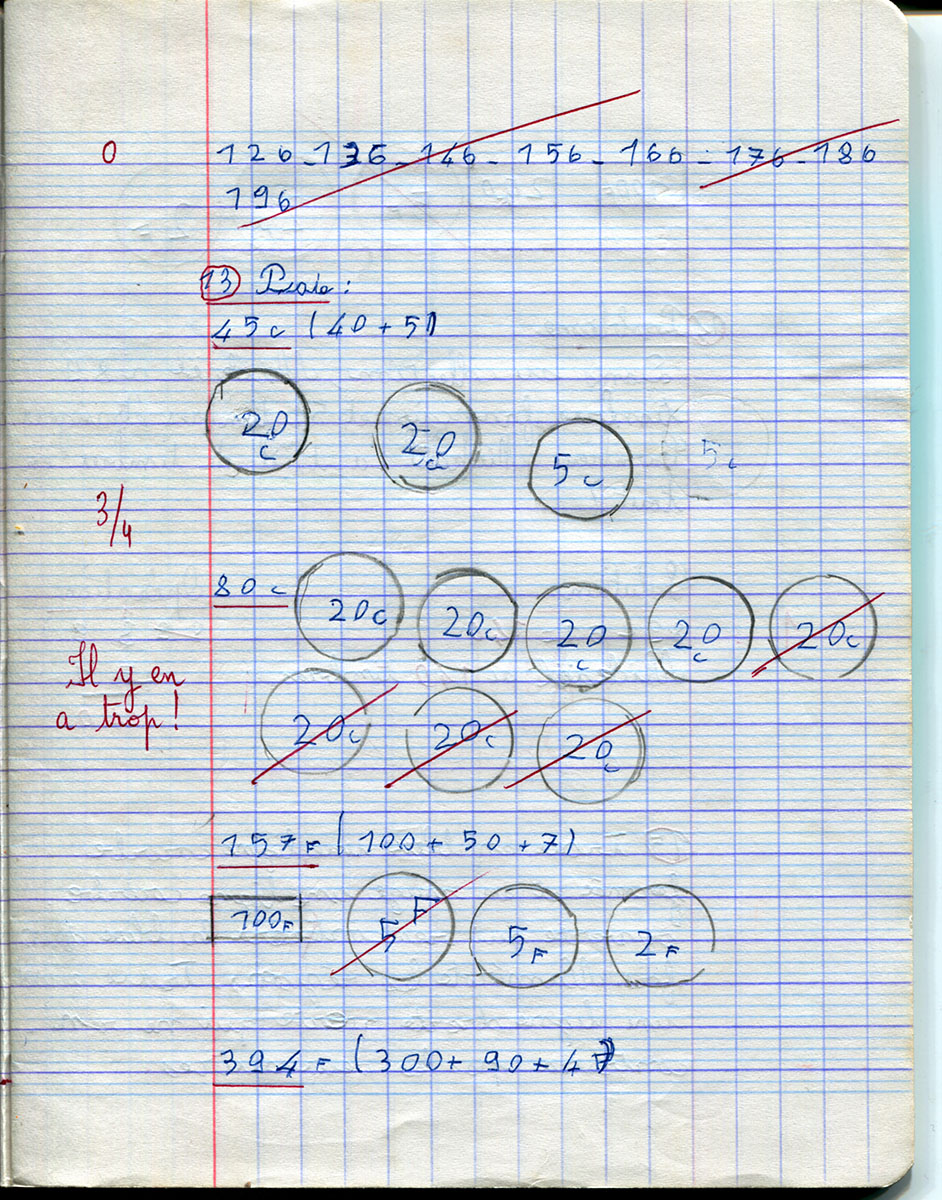 0
126 - 136 - 146 - 156 - 166 - 176 - 186
196
13
45c (40 + 5)
20c 20c 5c 5c
3/4
80c 20c 20c 20c 20c 20c
Il y en
a trop !
20c 20c 20c
157F (100 + 50 + 7)
100F 5F 5F 2F
394F (300 + 90 + 4)